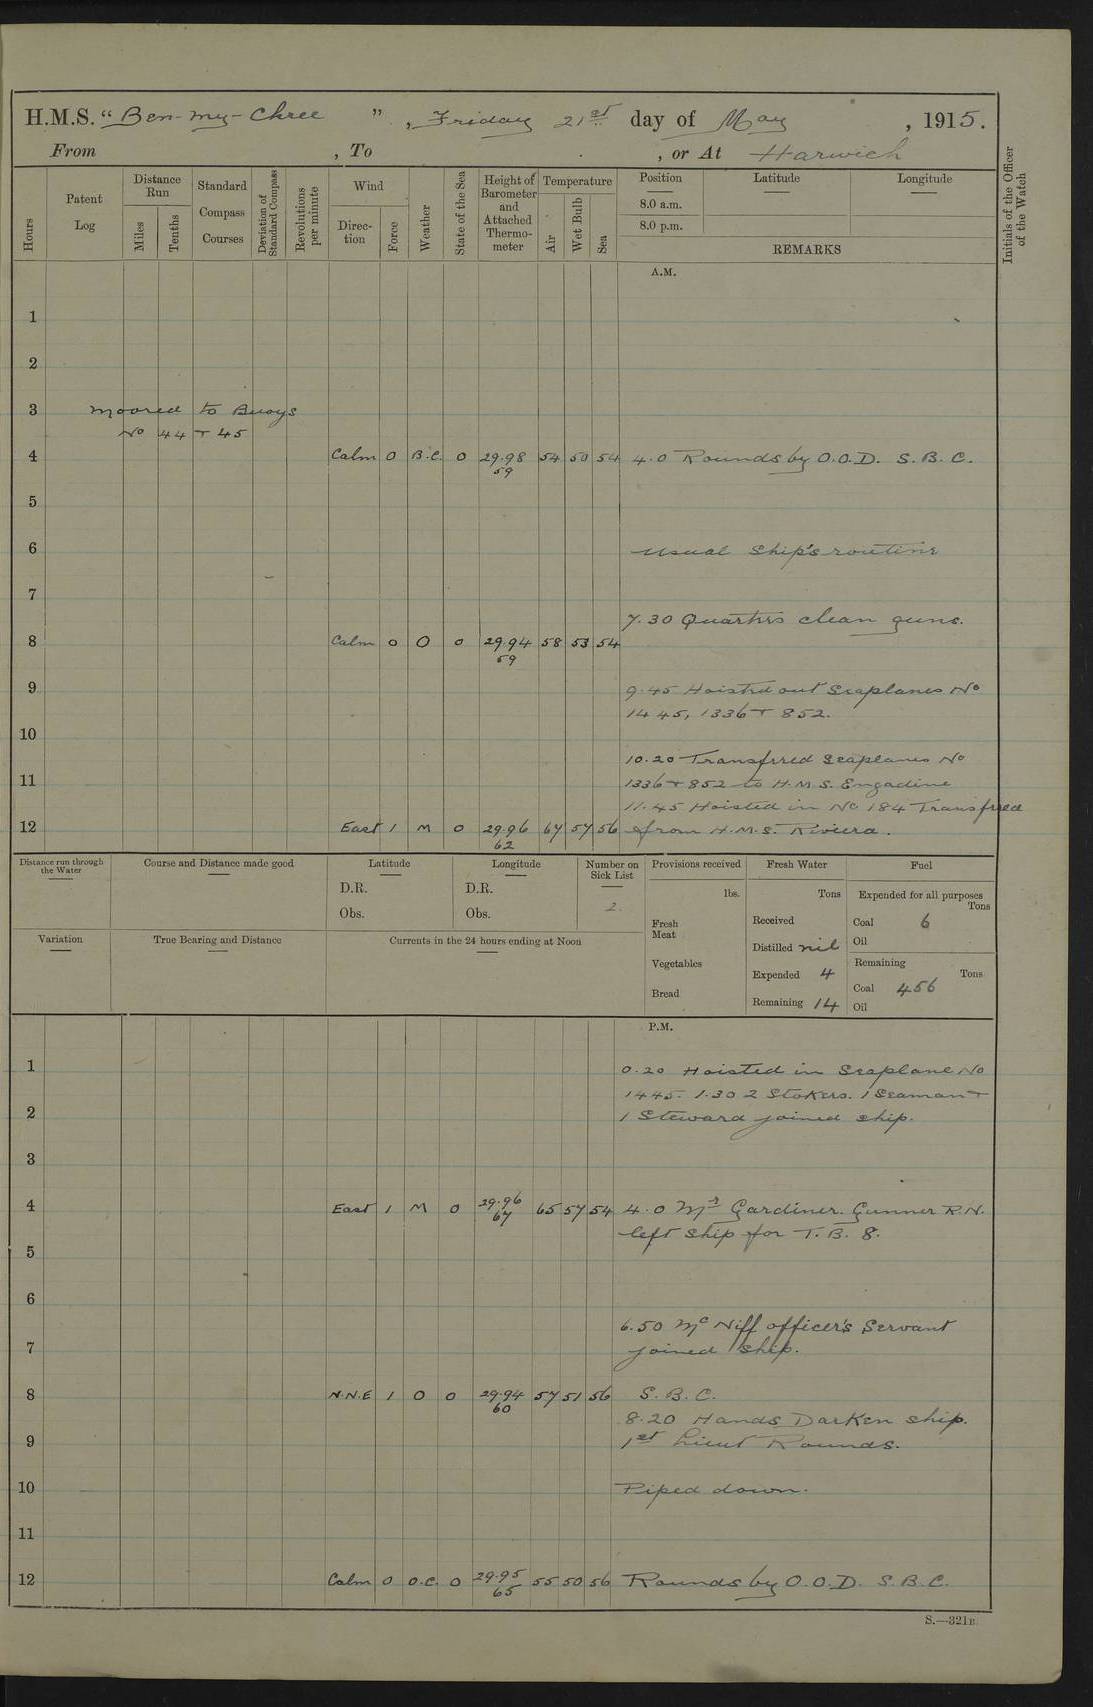 H.M.S. “ Ben-my-Chree ” , Friday 21st day of May , 1915.
From , To , or At Harwich
Hours
Patent Log
Distance Run
Miles
Tenths
Standard Compass Courses
Deviation of Standard Compass
Revolutions per minute
Wind
Direc-tion
Force
Weather
State of the Sea
Height of Barometer and Attached Thermo-meter
Temperature
Air
Wet Bulb
Sea
Position
8.0 a.m.
8.0 p.m.
Latitude
Longitude
REMARKS
Initials of the Officer of the Watch
A.M.
1
2
3 Moored to Buoys
No 44 + 45
4 Calm 0 B.C. 0 29.98 54 50 54 4.0 Rounds by O.O.D. S.B.C.
59
5
6 Usual Ship's routine
7
7.30 Quarters clean guns.
8 Calm 0 O 0 29.94 58 53 54
59
9 9.45 Hoisted out Seaplanes No
1445, 1336 + 852.
10
10.20 Transfered Seaplanes No
11 1336 + 852 to H.M.S. Engadine
11.45 Hoisted in No 184 Transfered
12 East 1 M 0 29.96 67 57 56 from H.M.S. Riviera.
62
Distance run through the Water
Course and Distance made good
Latitude
D.R.
Obs.
Longitude
D.R.
Obs.
Number on Sick List
2.
Provisions received
lbs.
Fresh Meat
Vegetables
Bread
Fresh Water
Tons
Received
Distilled nil
Expended 4
Remaining 14
Fuel
Expended for all purposes
Tons
Coal 6
Oil
Remaining
Tons
Coal 456
Oil
Variation
True Bearing and Distance
Currents in the 24 hours ending at Noon
P.M.
1 0.20 Hoisted in Seaplane No
1445. 1.30 2 Stokers. 1 Seaman +
2 1 Steward joined ship.
3
4 East 1 M 0 29.96 65 57 54 4.0 Mr Gardiner. Gunner R.N.
67
left ship for T.B. 8.
5
6
6.50 Mc Niff officer's Servant
7 joined ship.
8 N.N.E 1 O 0 29.94 57 51 56 S.B.C.
60
8.20 Hands Darken ship.
9 1st Lieut Rounds.
10 Piped down.
11
12 Calm 0 O.C. 0 29.95 55 50 56 Rounds by O.O.D. S.B.C.
65
S.—321B.